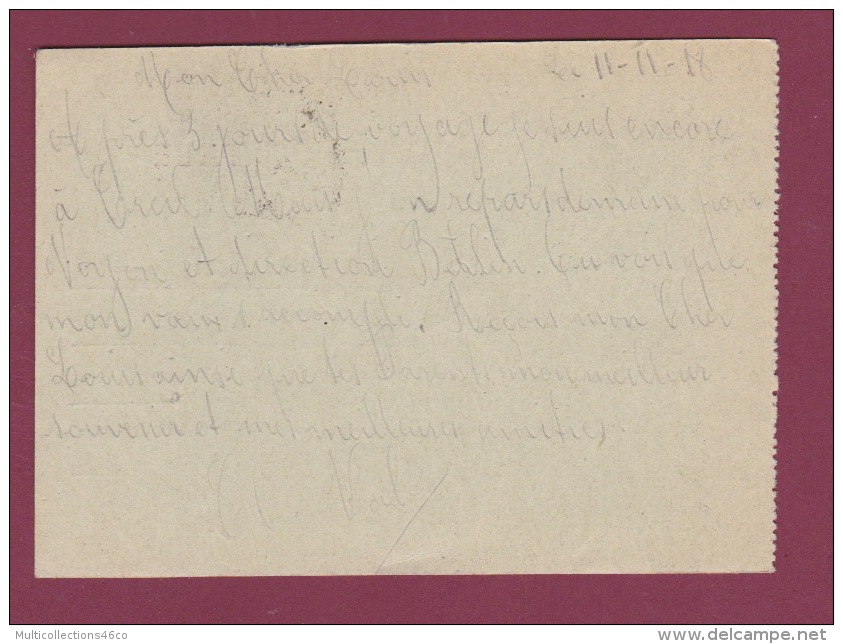 Mon Cher Louis Le 11-11-18
Après 3 jours de voyage je suis encore
à Creil. Mais j'en repars demain pour
Noyon et direction Berlin. Tu vois que
mon vœux s'accompli. Reçois mon Cher
Louis ainsi que tes Parents mon meilleur
souvenir et mes meilleures amitiés.
Multicollections46co
www.delcampe.net